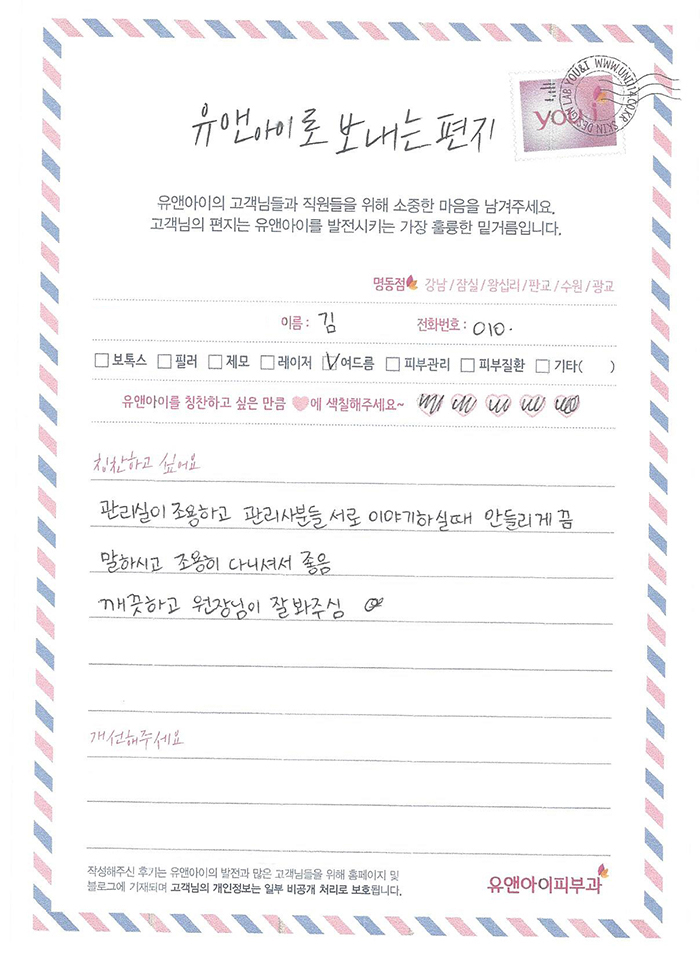 유앤아이로 보내는 편지
you i
SKIN DESIGN LAB YOU&I WWW.UNI114.CO.KR
유앤아이의 고객님들과 직원들을 위해 소중한 마음을 남겨주세요.
고객님의 편지는 유앤아이를 발전시키는 가장 훌륭한 밑거름입니다.
명동점 강남 / 잠실 / 왕십리 / 판교 / 수원 / 광교
이름 : 김 전화번호 : 010.
보톡스 필러 제모 레이저 여드름 피부관리 피부질환 기타( )
유앤아이를 칭찬하고 싶은 만큼 에 색칠해주세요~
칭찬하고 싶어요
관리실이 조용하고 관리사분들 서로 이야기하실때 안들리게끔
말하시고 조용히 다니셔서 좋음
깨끗하고 원장님이 잘봐주심
개선해주세요
작성해주신 후기는 유앤아이의 발전과 많은 고객님들을 위해 홈페이지 및
블로그에 기재되며 고객님의 개인정보는 일부 비공개 처리로 보호됩니다.
유앤아이피부과